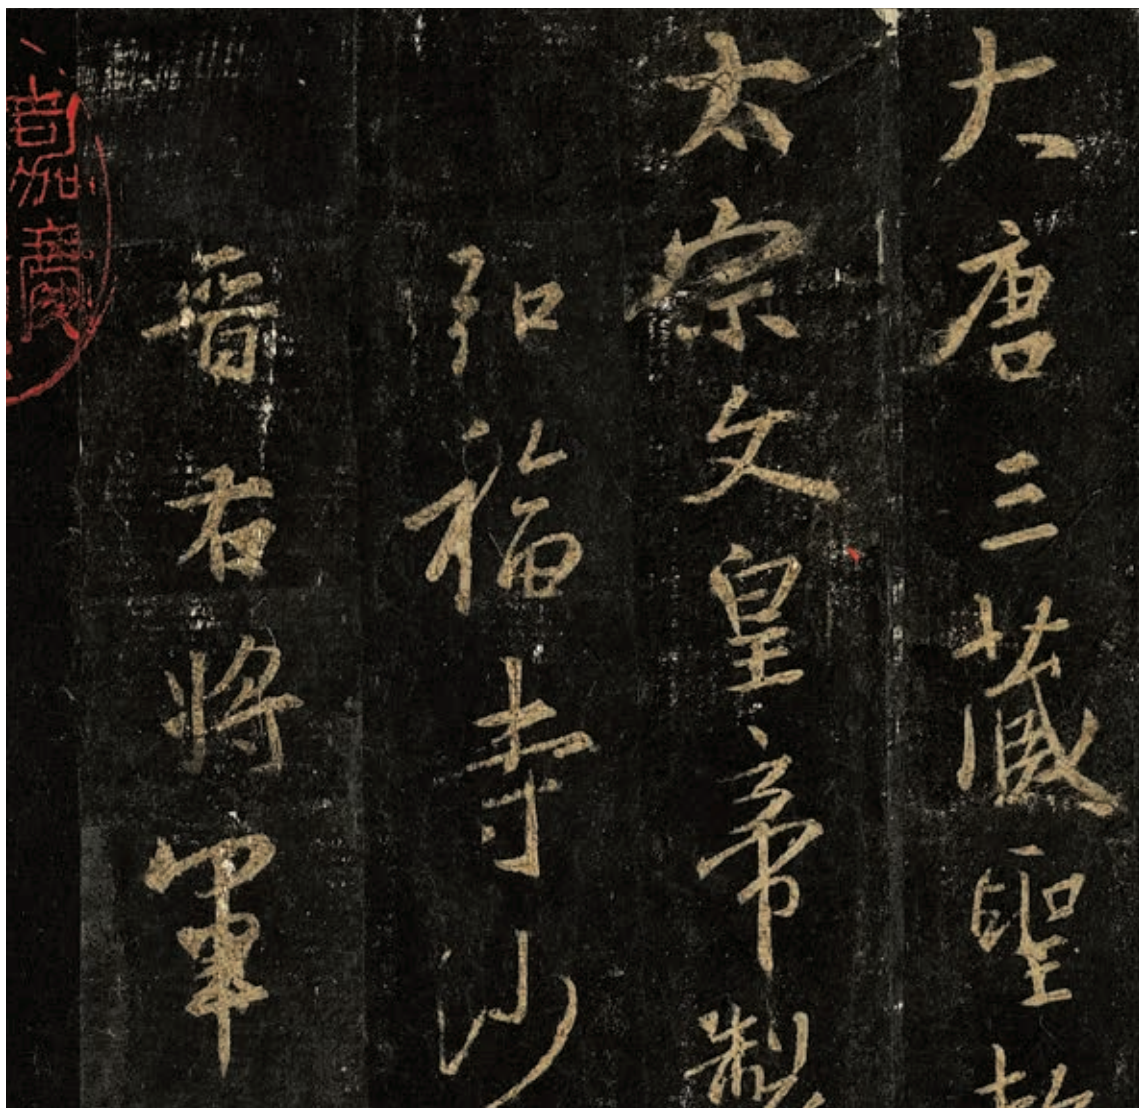 大唐三藏聖教
太宗文皇帝製
弘福寺沙
晉右將軍
嘉慶